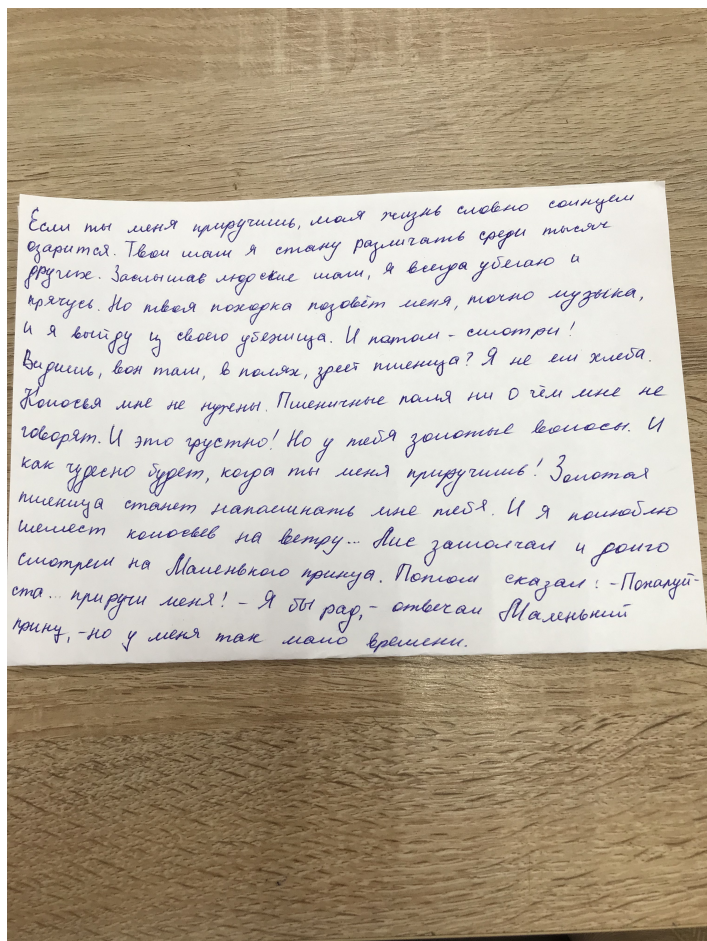 Если ты меня приручишь, моя жизнь словно солнцем
озарится. Твои шаги я стану различать среди тысяч
других. Заслышав людские шаги, я всегда убегаю и
прячусь. Но твоя походка позовёт меня, точно музыка,
и я выйду из своего убежища. И потом - смотри!
Видишь, вон там, в полях, зреет пшеница? Я не ем хлеба.
Колосья мне не нужены. Пшеничные поля ни о чём мне не
говорят. И это грустно! Но у тебя золотые волосы. И
как чудесно будет, когда ты меня приручишь! Золотая
пшеница станет напоминать мне тебя. И я полюблю
шелест колосьев на ветру... Лис замолчал и долго
смотрел на Маленького принца. Потом сказал: - Пожалуй-
ста... приручи меня! - Я бы рад, - отвечал Маленький
принц, - но у меня так мало времени.